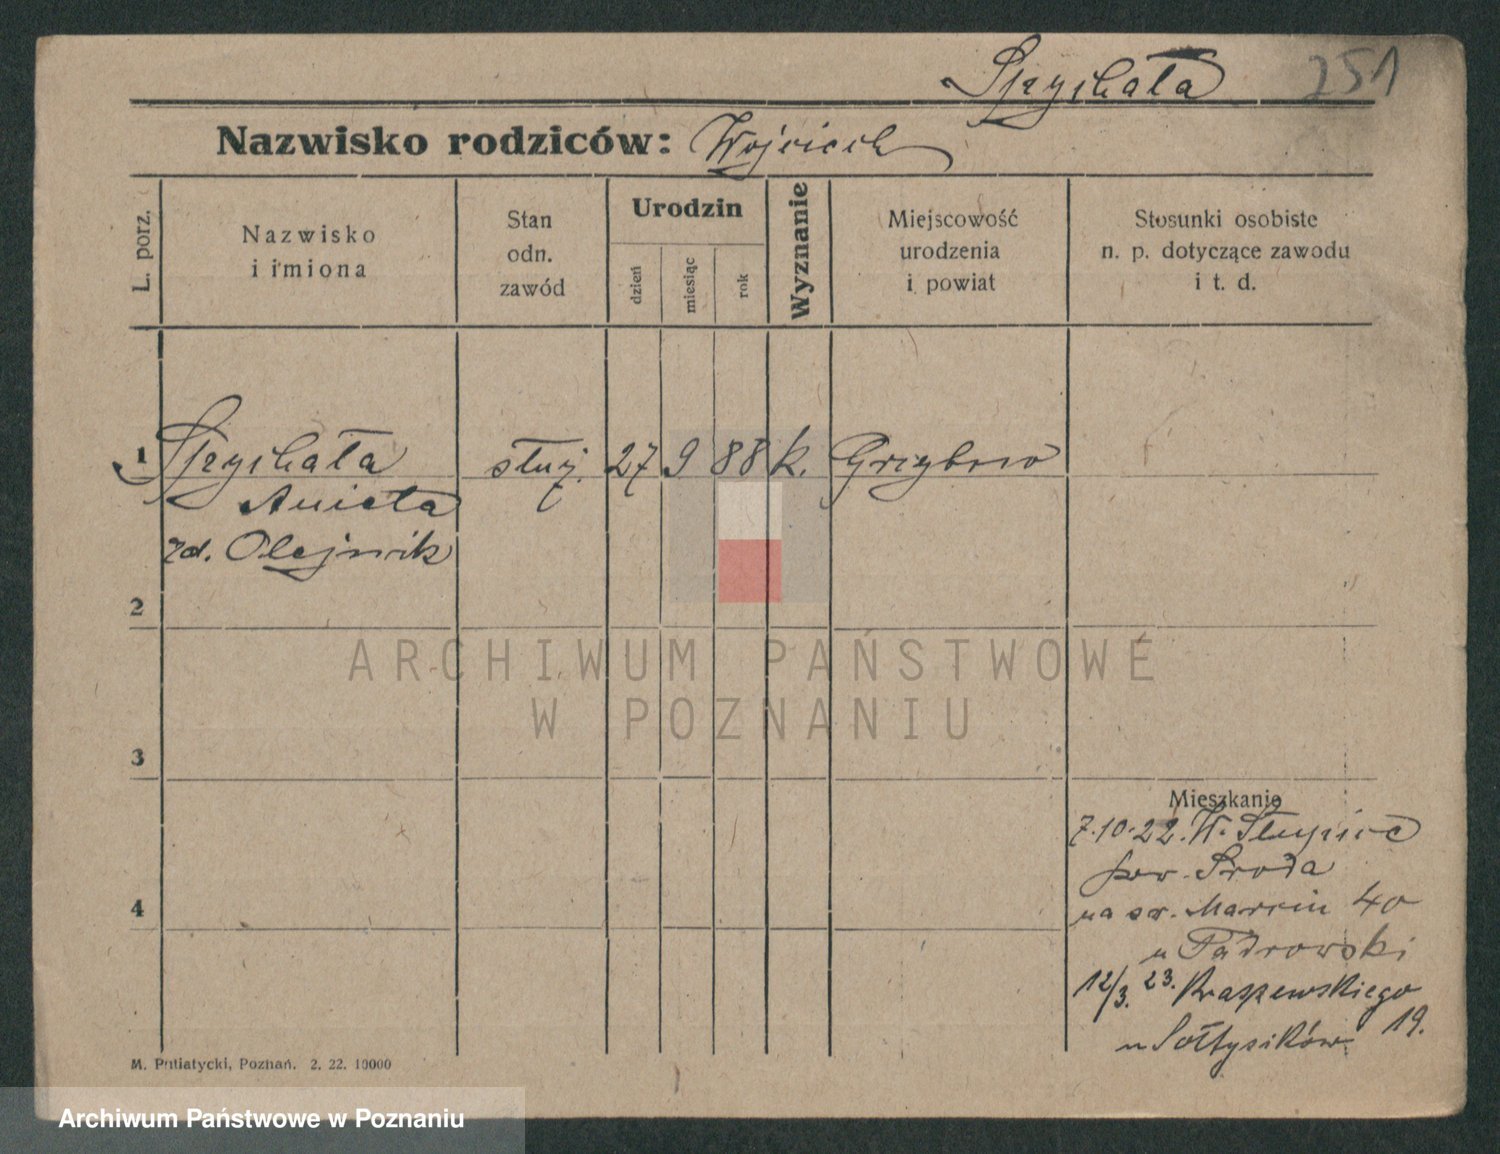 Spychała 251
Nazwisko rodziców: Wojciech
L. porz.
Nazwisko
i imiona
Stan
odn.
zawód
Urodzin
dzień
miesiąc
rok
Wyznanie
Miejscowość
urodzenia
i powiat
Stosunki osobiste
n. p. dotyczące zawodu
i t. d.
1 Spychała służ. 27 9 88 k. Grzybowo
Aniela
zd. Olejnik
2
ARCHIWUM PAŃSTWOWE
W POZNANIU
3
Mieszkanie
7.10.22. W.
pow. Środa
4
na św. Marcin 40
u
12/3. 23. Kraszewskiego
19.
u Sołtysików
M. Putiatycki, Poznań. 2. 22. 10000
Archiwum Państwowe w Poznaniu